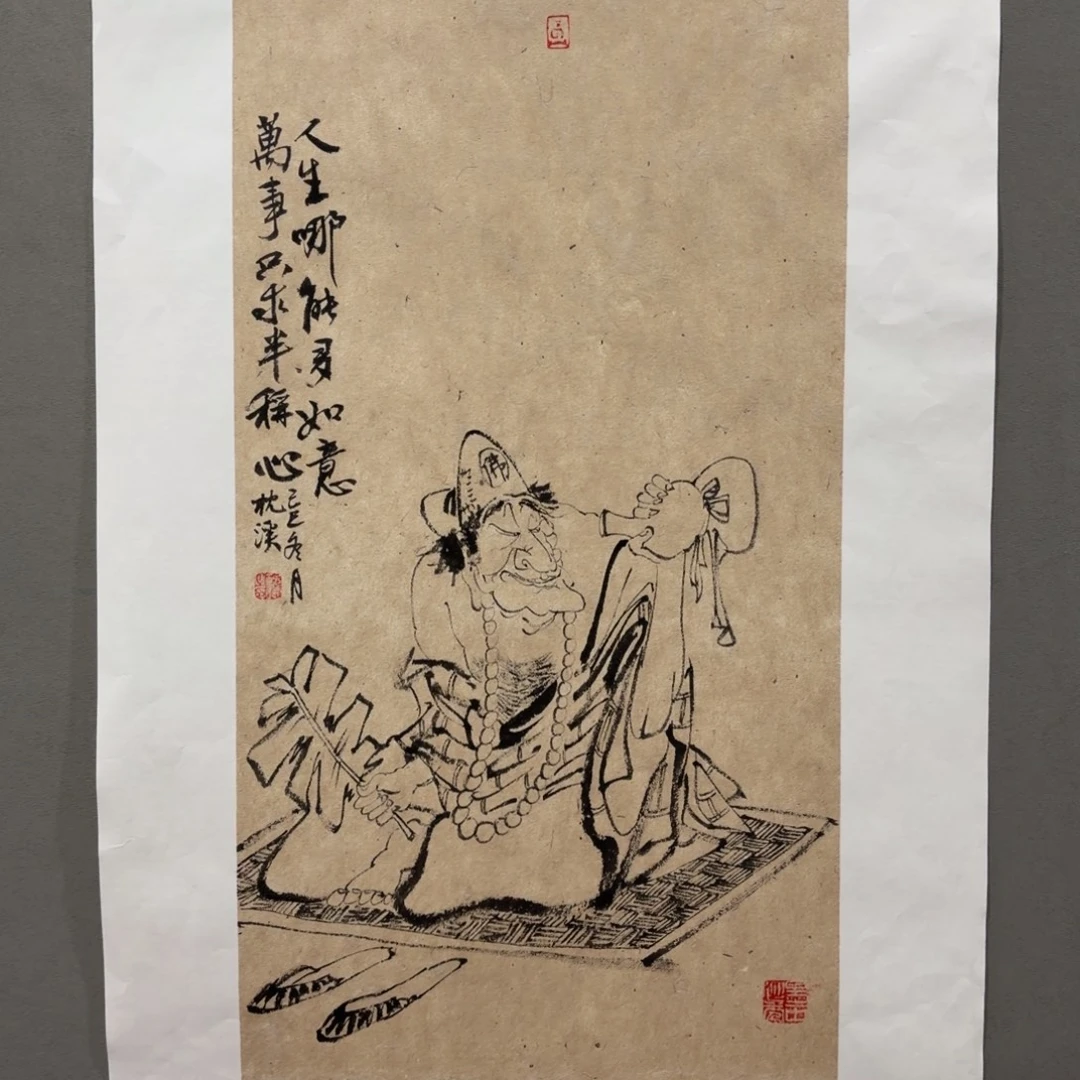 人生哪能多如意
萬事只求半稱心
乙巳冬月
枕溪
佛